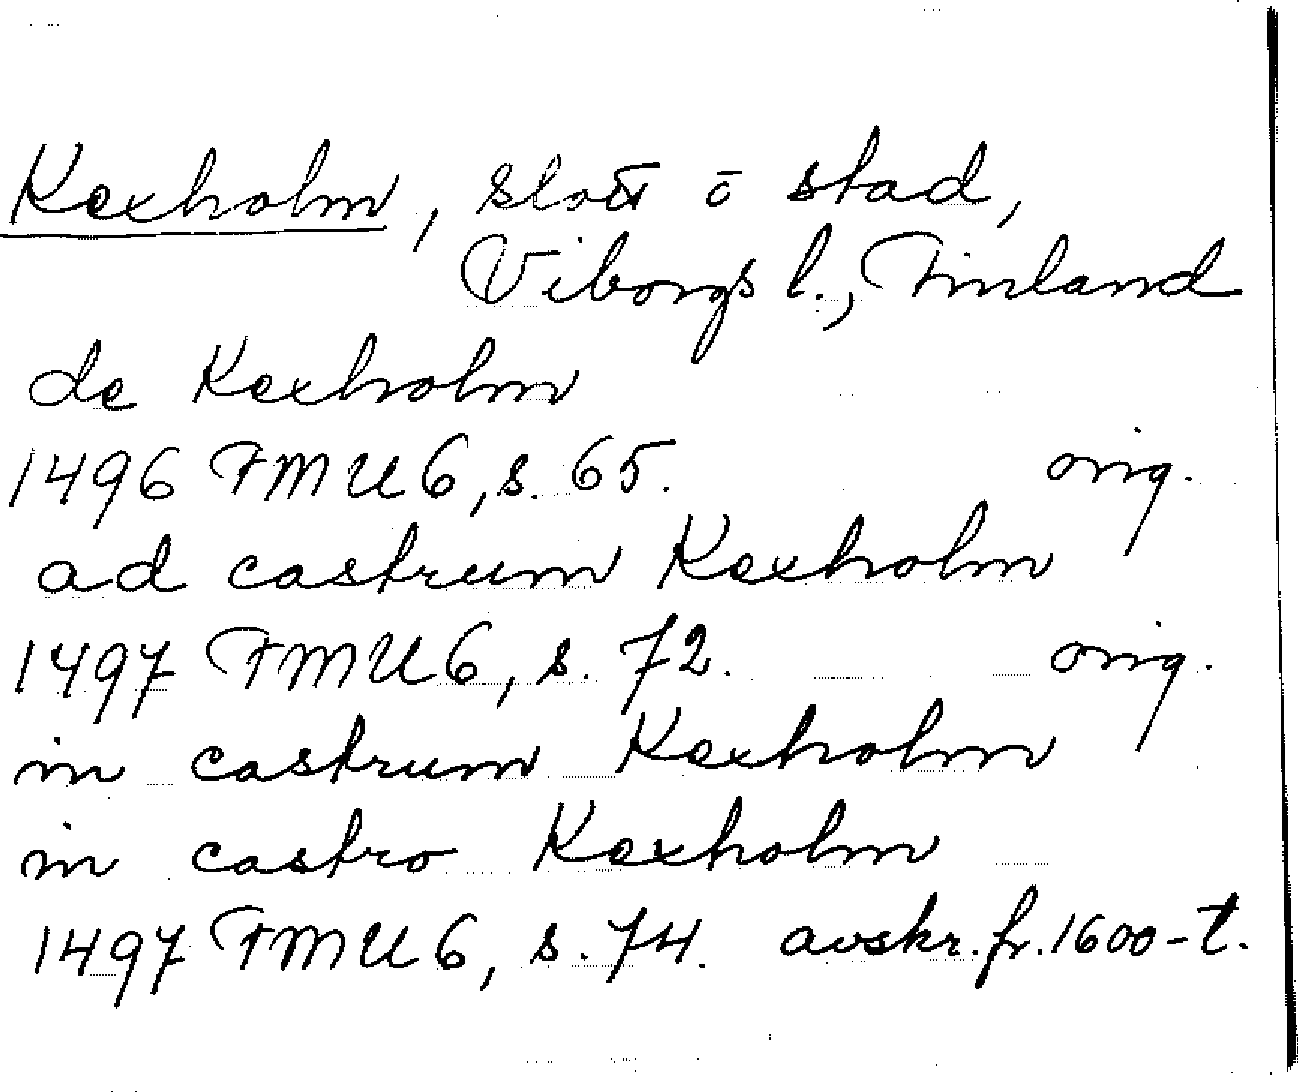 Kexholm, slott ō stad,
Viborgs l., Finland
de Kexholm
1496 FMU 6, s. 65. orig.
ad castrum Kexholm
1497 FMU 6, s. 72. orig.
in castrum Kexholm
in castro Kexholm
1497 FMU 6, s. 74. avskr. fr. 1600-t.